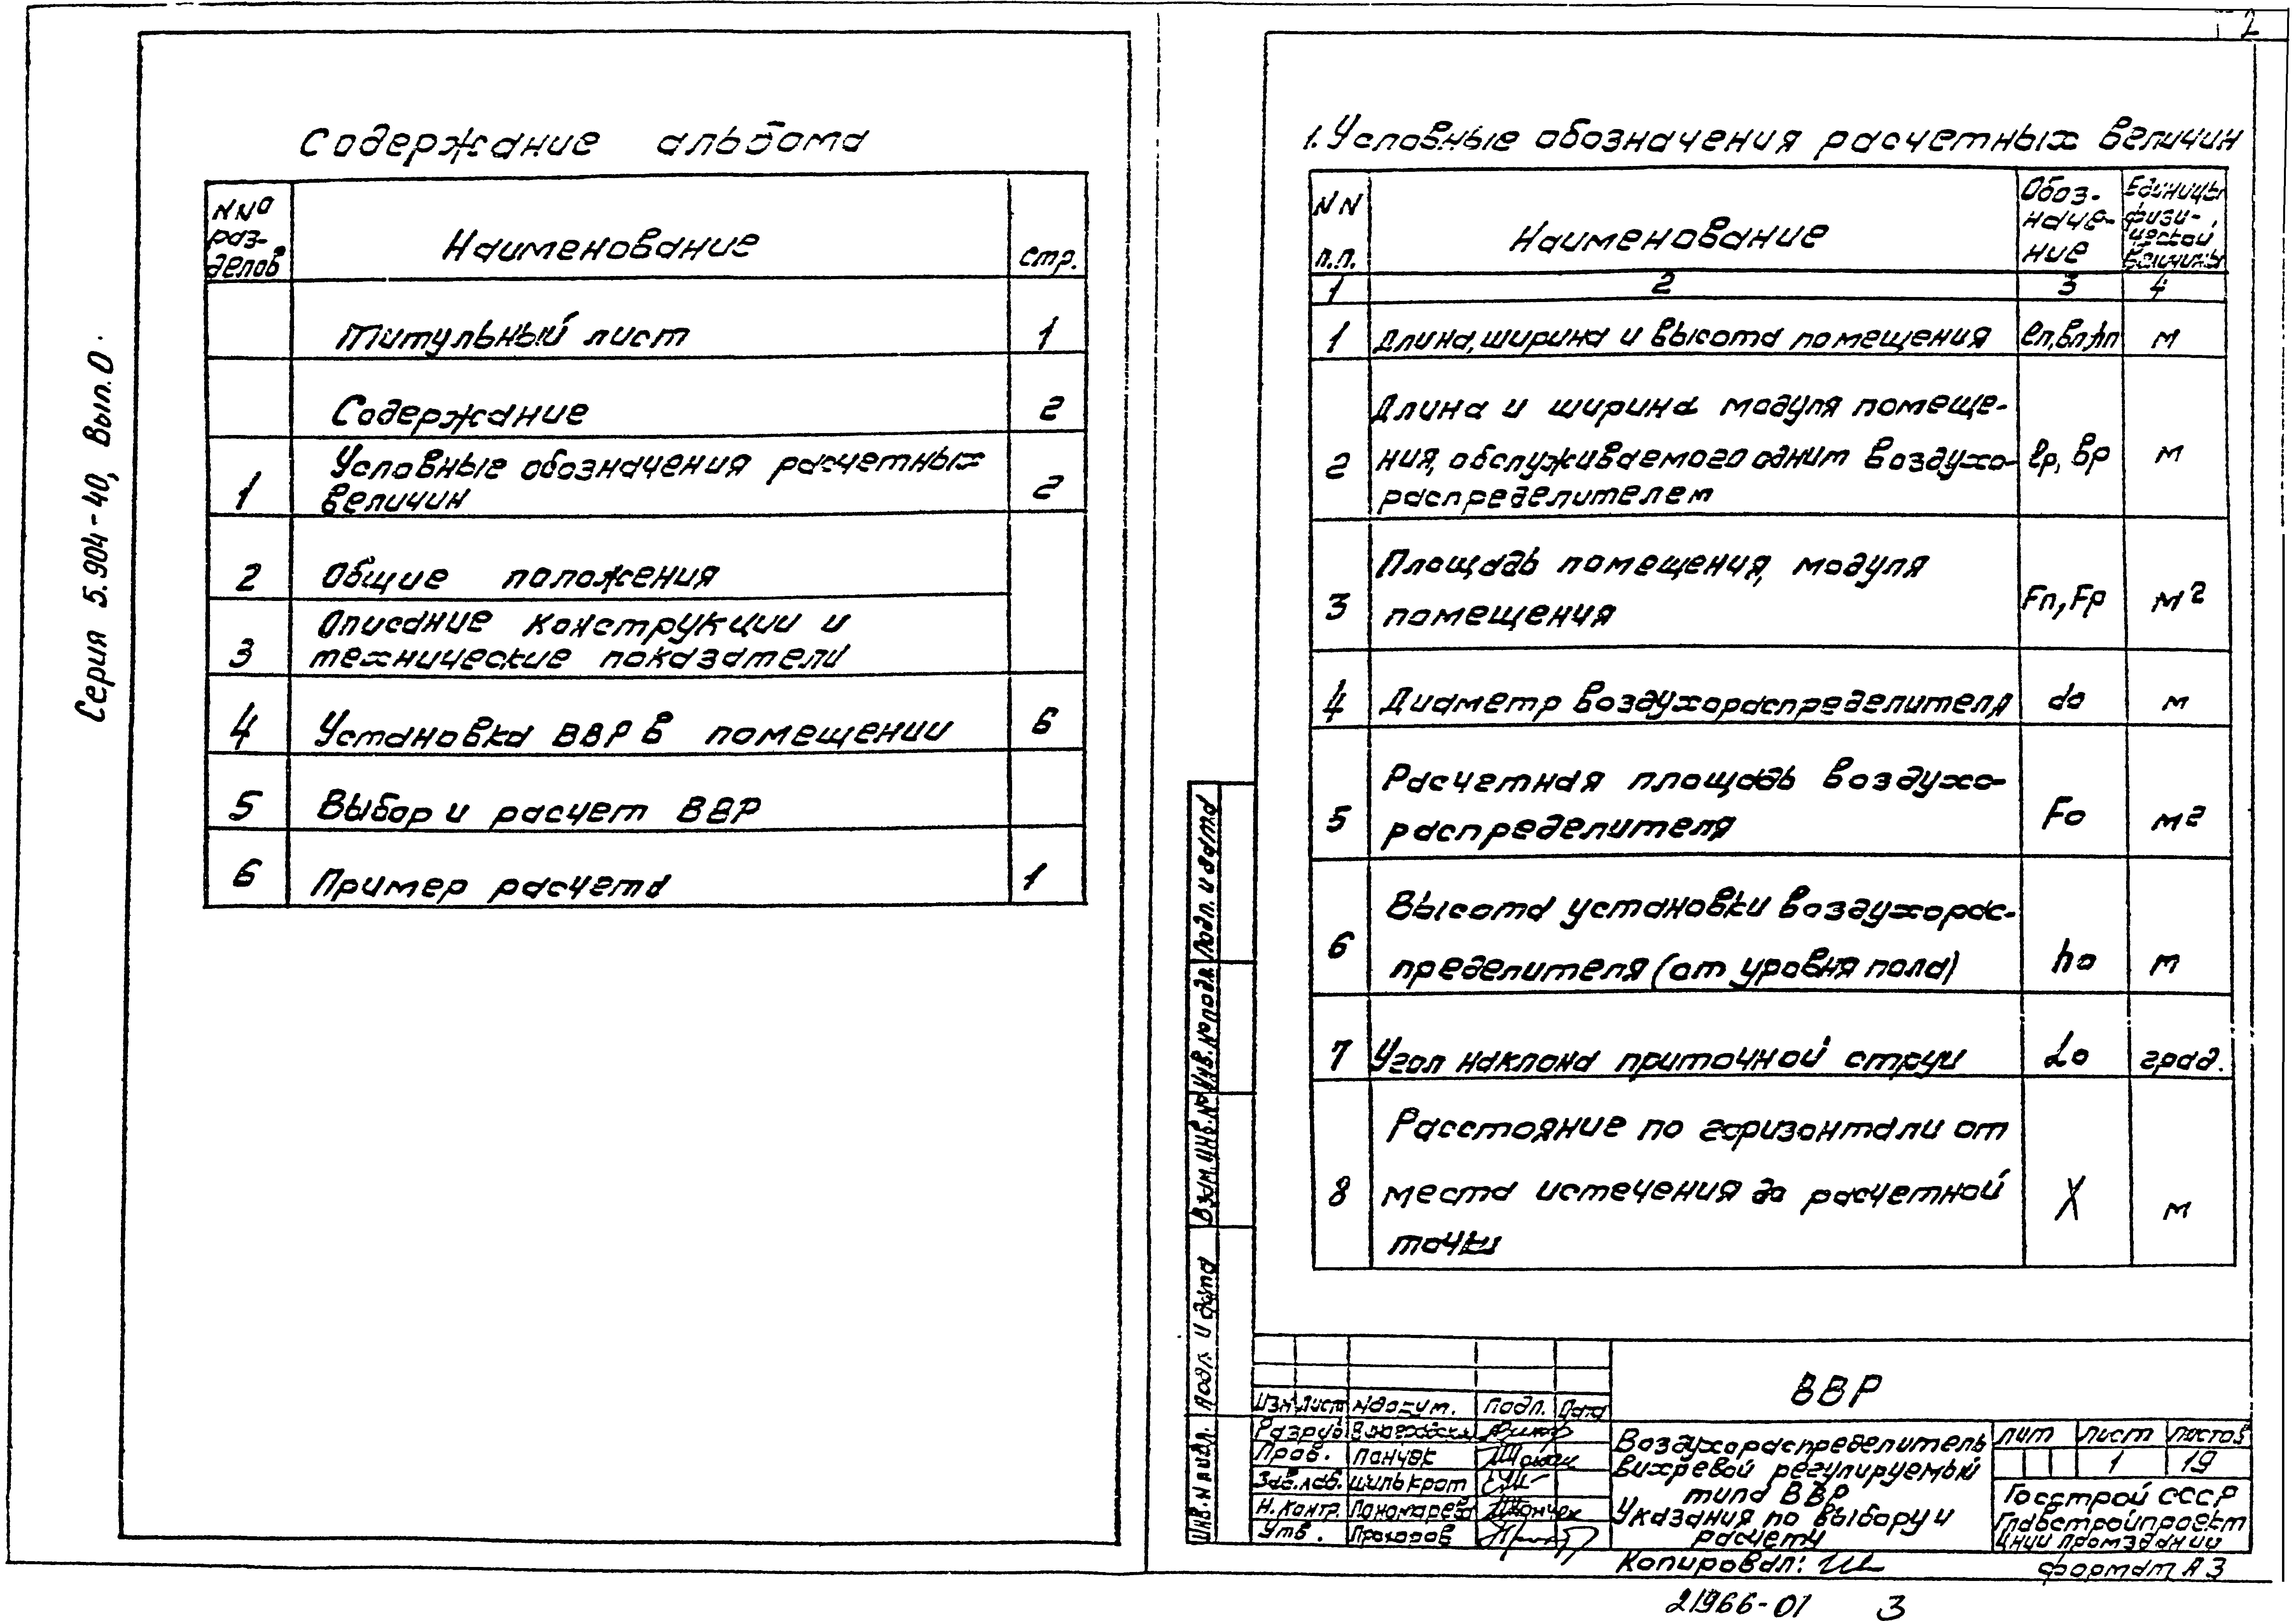 2
Серия 5.904-40, Вып.0
Содержание альбома
NNº раз-делов Наименование стр.
Титульный лист 1
Содержание 2
1 Условные обозначения расчетных величин 2
2 Общие положения
3 Описание конструкции и технические показатели
4 Установка ВВР в помещении 6
5 Выбор и расчет ВВР
6 Пример расчета 1
1. Условные обозначения расчетных величин
NN п.п. Наименование Обоз-наче-ние Единицы физи-ческой величины
1 2 3 4
1 Длина, ширина и высота помещения ℓп, вп, hп м
2 Длина и ширина модуля помеще-
ния, обслуживаемого одним воздухо- ℓр, вр м
распределителем
3 Площадь помещения, модуля
помещения Fп, Fр м²
4 Диаметр воздухораспределителя do м
5 Расчетная площадь воздухо-
распределителя Fo м²
6 Высота установки воздухорас-
пределителя (от уровня пола) ho м
7 Угол наклона приточной струи αo град.
8 Расстояние по горизонтали от
места истечения до расчетной X м
точки
Инв. N подл. Подп. и дата Взам. инв. № Инв. № подл. Подп. и дата
ВВР
Изм Лист N докум. Подп. Дата
Разраб
Пров. Панчек
Зав.лаб. Шилькрот
Н.Контр. Пономарева
Утв. Прохоров
Воздухораспределитель
вихревой регулируемый
типа ВВР
Указания по выбору и
расчету
лит лист листов
1 19
Госстрой СССР
Главстройпроект
ЦНИИ Промзданий
Копировал:
формат А3
21966-01 3